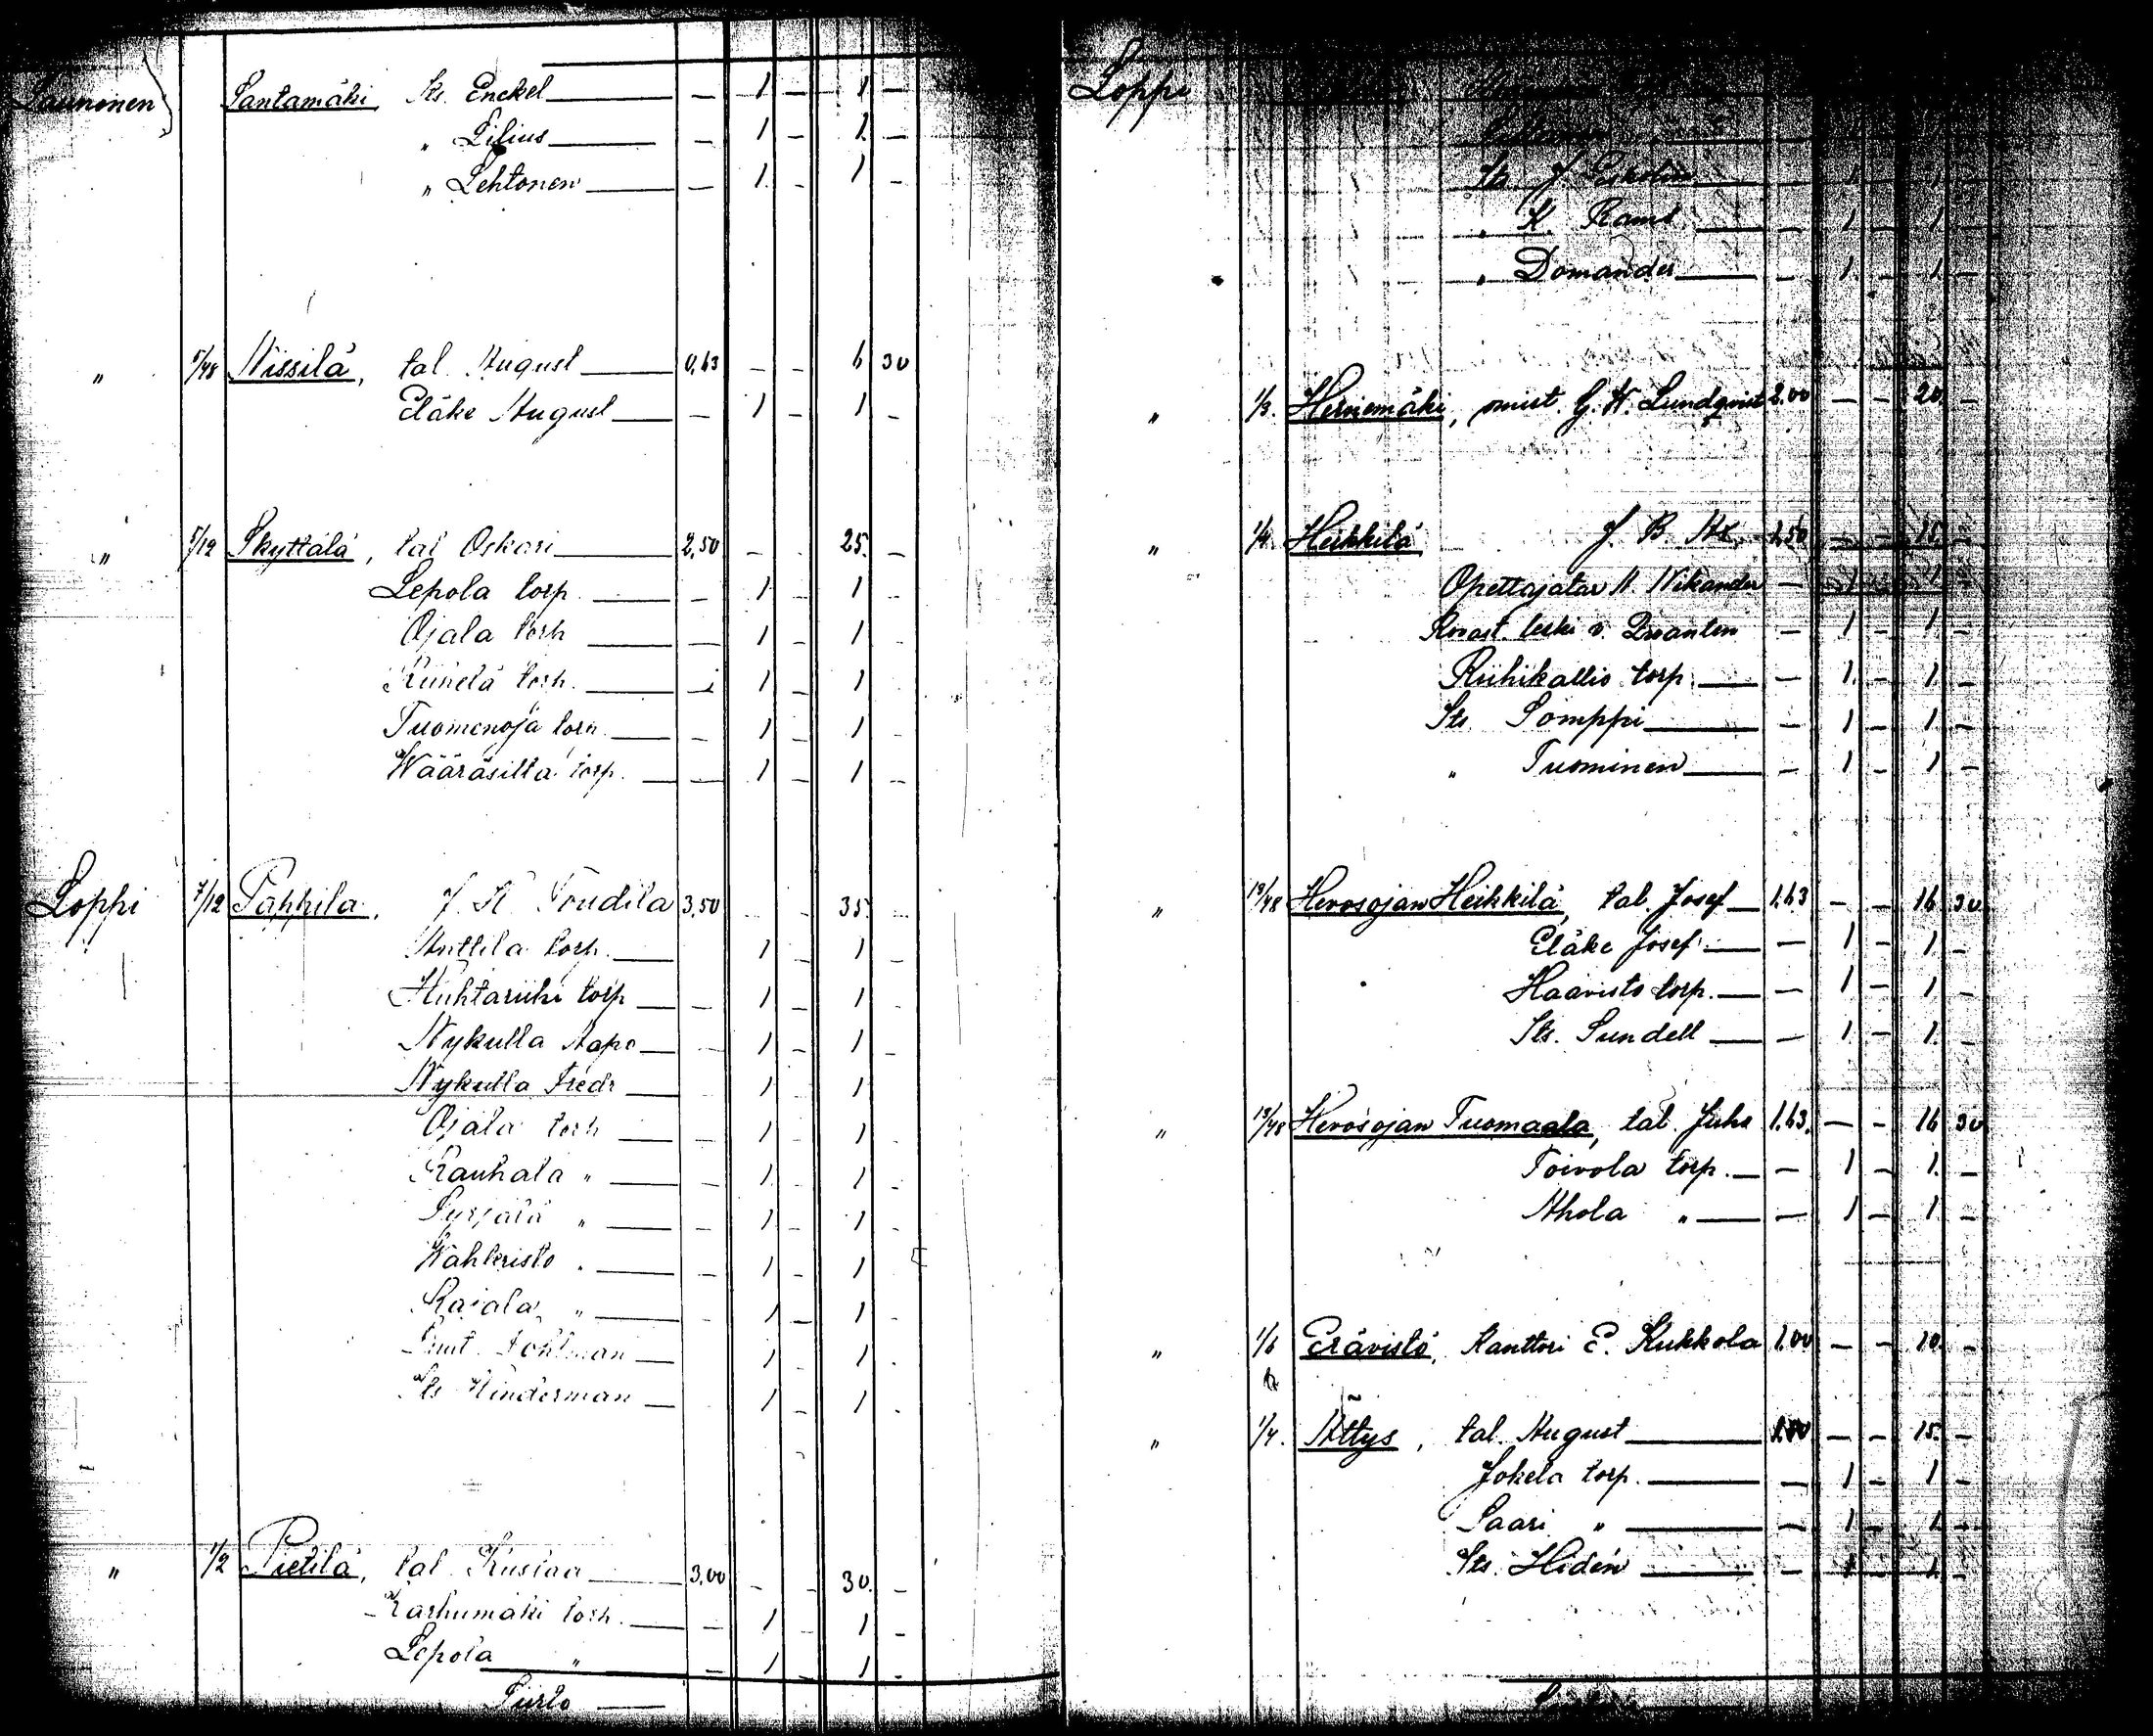 Launonen Santamäki, Its. Enckel — — 1 — 1 —
" Lilius — — 1 — 1 —
" Lehtonen — — 1 — 1 —
" 5/48 Nissilä, tal. August — 0,63 — — 6 30
Eläke August — — 1 — 1 —
" 5/12 Skyttälä, tal. Oskari — 2,50 — — 25 —
Lepola torp. — — 1 — 1 —
Ojala torp. — — 1 — 1 —
torp. — — 1 — 1 —
Tuomenoja torp. — — 1 — 1 —
Wääräsilta torp. — — 1 — 1 —
Loppi 7/12 Pappila, 3,50 — — 35 —
Anttila torp. — 1 — 1 —
Huhtariihi torp — — 1 — 1 —
Nykulla Aapo — — 1 — 1 —
Nykulla Fredr — — 1 — 1 —
Ojala torp — — 1 — 1 —
Rauhala " — — 1 — 1 —
Syrjälä " — — 1 — 1 —
" — — 1 — 1 —
Rajala " — — 1 — 1
— — 1 — 1
Its — 1 — 1
" 1/2 Pietilä, tal. Kustaa — 3,00 — — 30 —
Karhumäki torp. — — 1 — 1 —
Lepola " — — 1 — 1 —
Siirto —
Loppi
Its. J. — — 1 — 1 —
" K. Rams — — 1 — 1 —
" Domander — — 1 — 1 —
" 1/3. Hernemäki, omist. G. A. Lundqvist 2.00 — — 20 —
" 1/4. Heikkilä J. B. 1,50 — — 15 —
Opettajatar A. Wikander — 1 — 1 —
Rovast. leski v. — 1 — 1 —
Riihikallio torp. — — 1 — 1 —
Its. Somppi — — 1 — 1 —
" Tuominen — — 1 — 1 —
" 13/48 Hevosojan Heikkilä, tal. Josef — 1.63 — — 16 30
Eläke Josef — — 1 — 1 —
Haavisto torp. — — 1 — 1 —
Its. Sundell — — 1 — 1 —
" 13/48 Hevosojan Tuomaala, tal. Juha 1.63. — — 16 30
Toivola torp. — — 1 — 1 —
Ahola " — — 1 — 1 —
" 1/6 Erävistö, Kanttori E. Kukkola 1.00 — — 10 —
" 1/4. Attys, tal. August — — — 15 —
Jokela torp. — — 1 — 1 —
Saari " — — 1 — 1 —
Its. Hidén — — 1 — 1 —